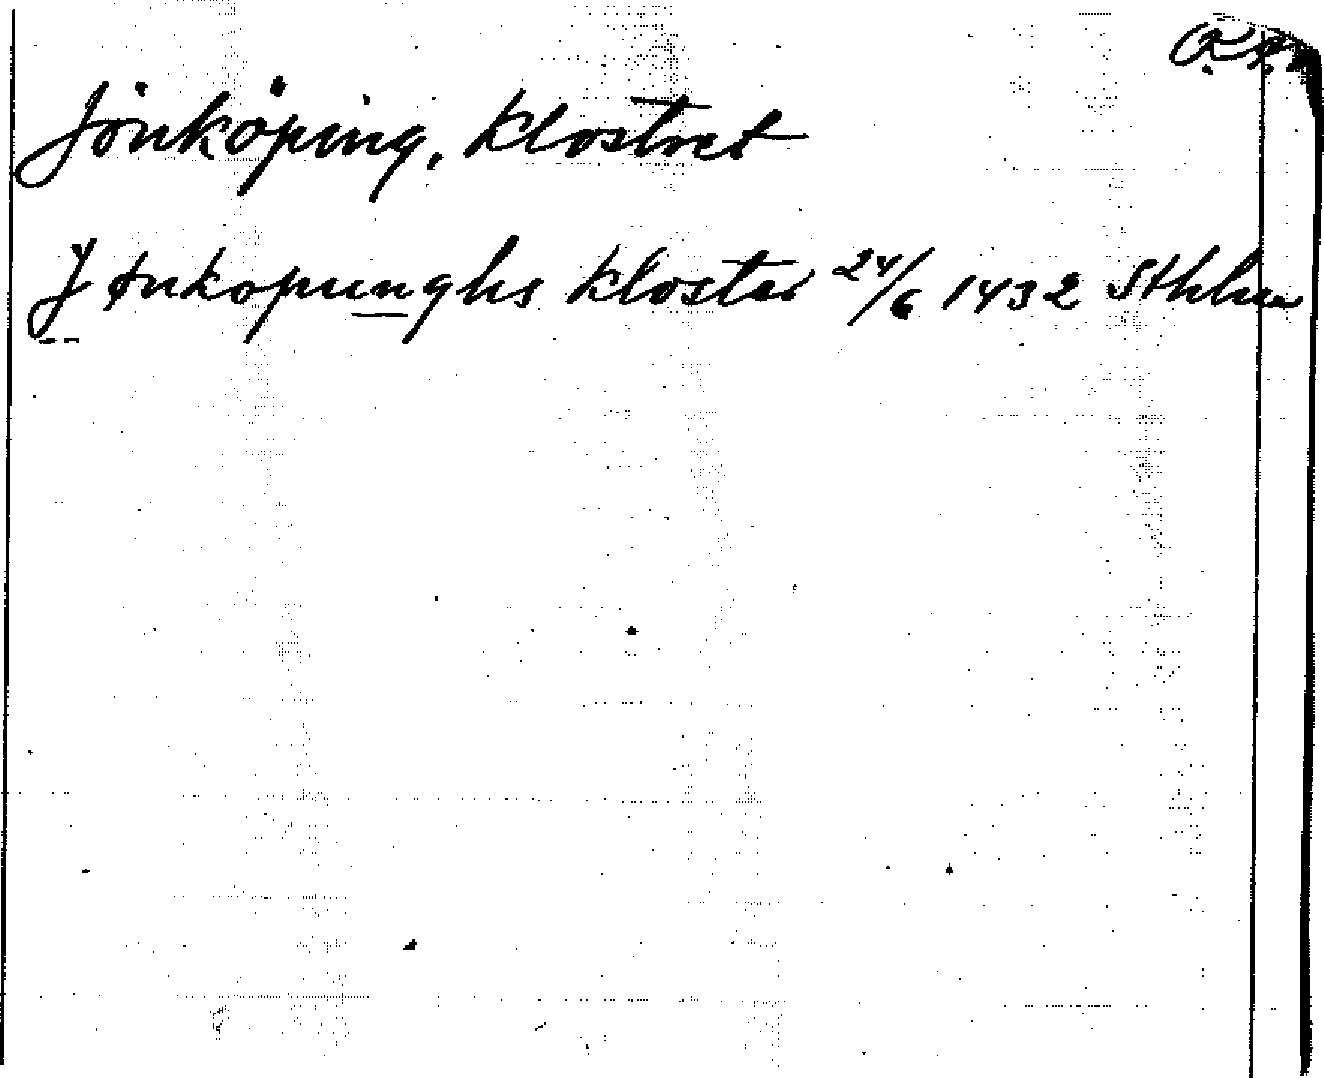 Jönköping, Klostret
Jønkopunghs kloster 24/6 1432 Sthlm